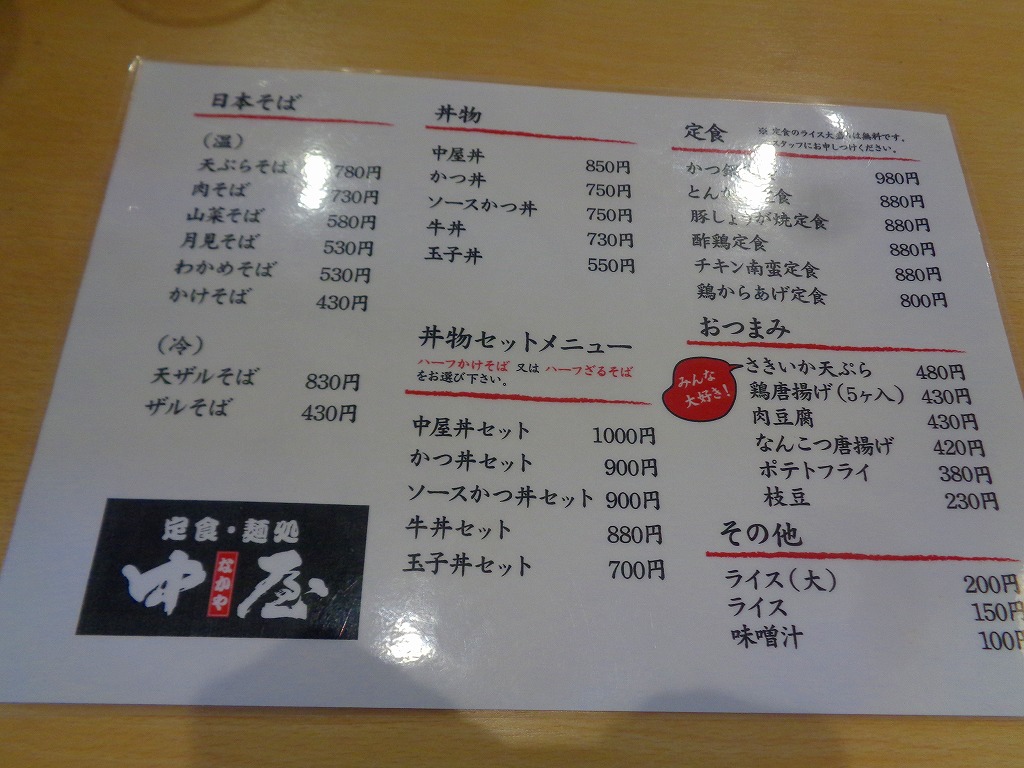 日本そば
(温)
天ぷらそば 780円
肉そば 730円
山菜そば 580円
月見そば 530円
わかめそば 530円
かけそば 430円
(冷)
天ザルそば 830円
ザルそば 430円
定食・麺処
中屋
なかや
丼物
中屋丼 850円
かつ丼 750円
ソースかつ丼 750円
牛丼 730円
玉子丼 550円
丼物セットメニュー
ハーフかけそば 又は ハーフざるそば
をお選び下さい。
中屋丼セット 1000円
かつ丼セット 900円
ソースかつ丼セット 900円
牛丼セット 880円
玉子丼セット 700円
定食
※ 定食のライス大盛りは無料です。
スタッフにお申しつけください。
かつ 980円
とん 定食 880円
豚しょうが焼定食 880円
酢鶏定食 880円
チキン南蛮定食 880円
鶏からあげ定食 800円
おつまみ
みんな
大好き!
さきいか天ぷら 480円
鶏唐揚げ(5ヶ入) 430円
肉豆腐 430円
なんこつ唐揚げ 420円
ポテトフライ 380円
枝豆 230円
その他
ライス(大) 200円
ライス 150円
味噌汁 100円